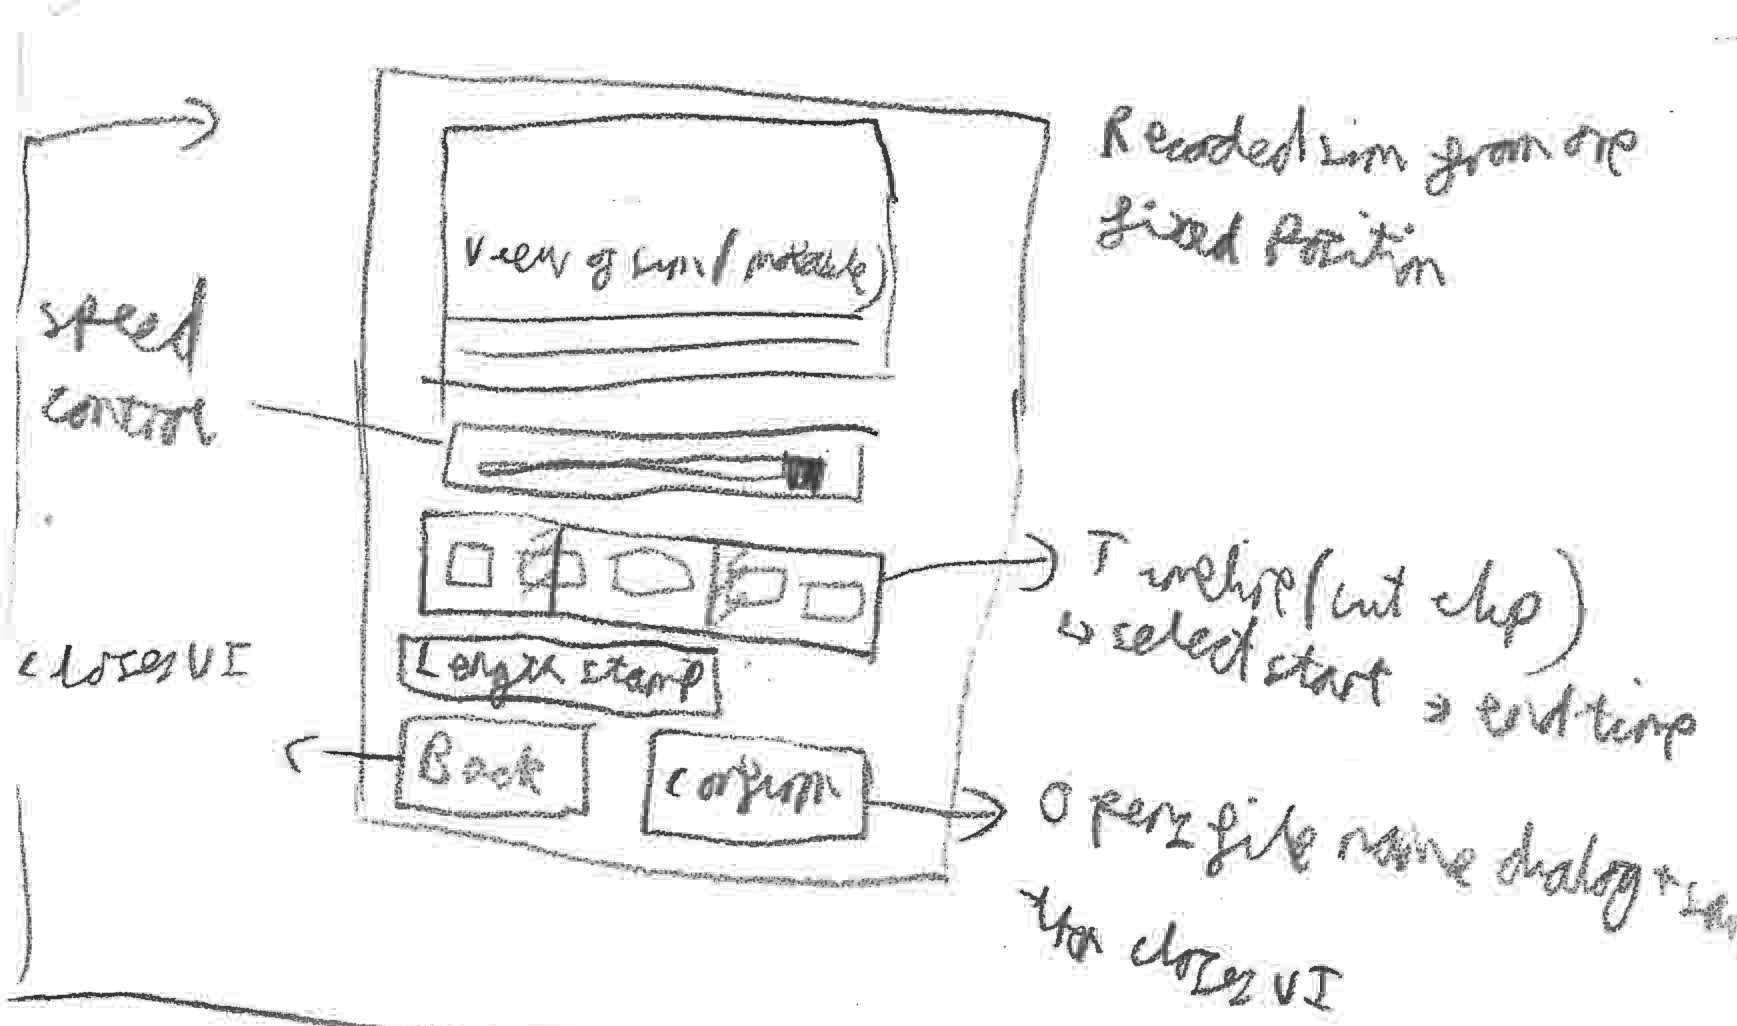 Recoded sim from one
fixed Position
View of sim (rotatable)
speed
control
Timeline (cut clip)
↳ select start → end time
Length stamp
closes UI
Back
confirm
Opens file name dialog +
then closes UI